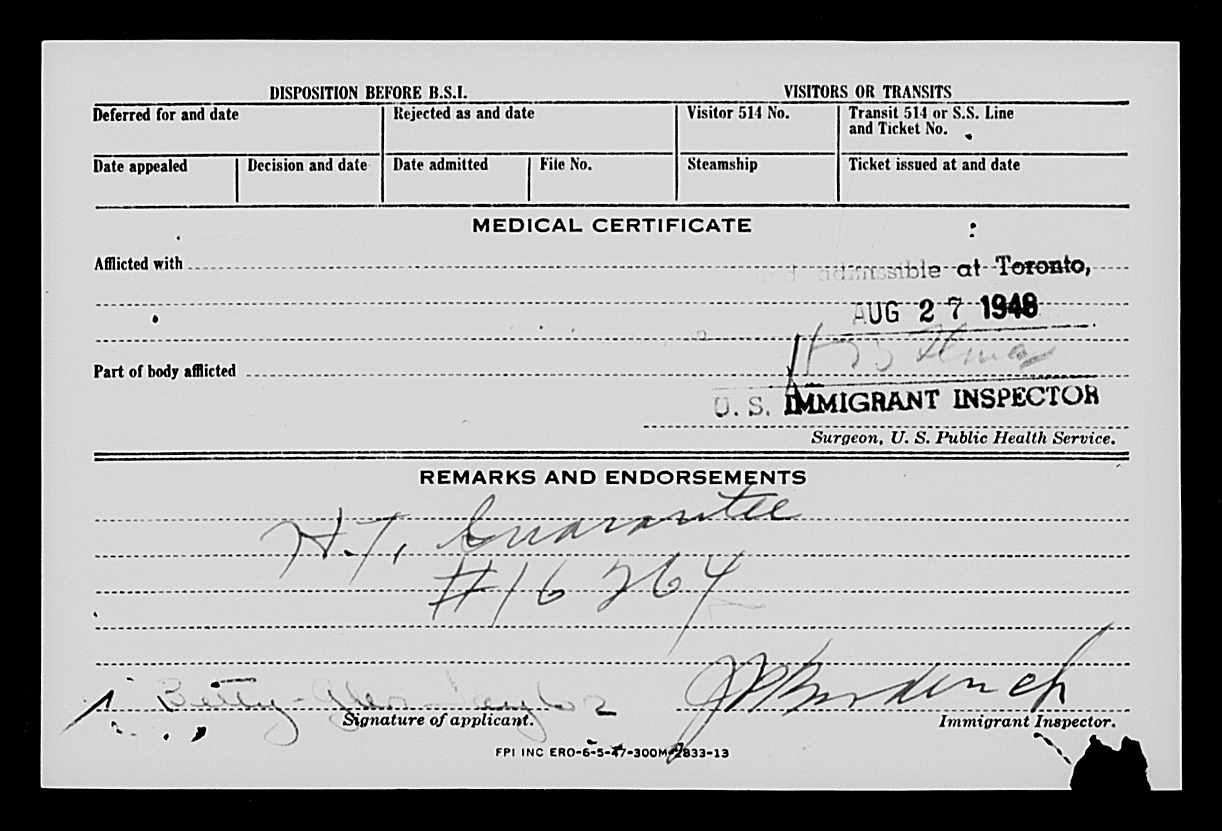 DISPOSITION BEFORE B.S.I.
VISITORS OR TRANSITS
Deferred for and date
Rejected as and date
Visitor 514 No.
Transit 514 or S.S. Line and Ticket No.
Date appealed
Decision and date
Date admitted
File No.
Steamship
Ticket issued at and date
MEDICAL CERTIFICATE
Afflicted with
admissible at Toronto,
AUG 27 1948
Part of body afflicted
U. S. IMMIGRANT INSPECTOR
Surgeon, U. S. Public Health Service.
REMARKS AND ENDORSEMENTS
H.T. Guarantee
#16264
Betty Taylor
Signature of applicant.
Immigrant Inspector.
FPI INC ERO-6-5-47-300M-2833-13